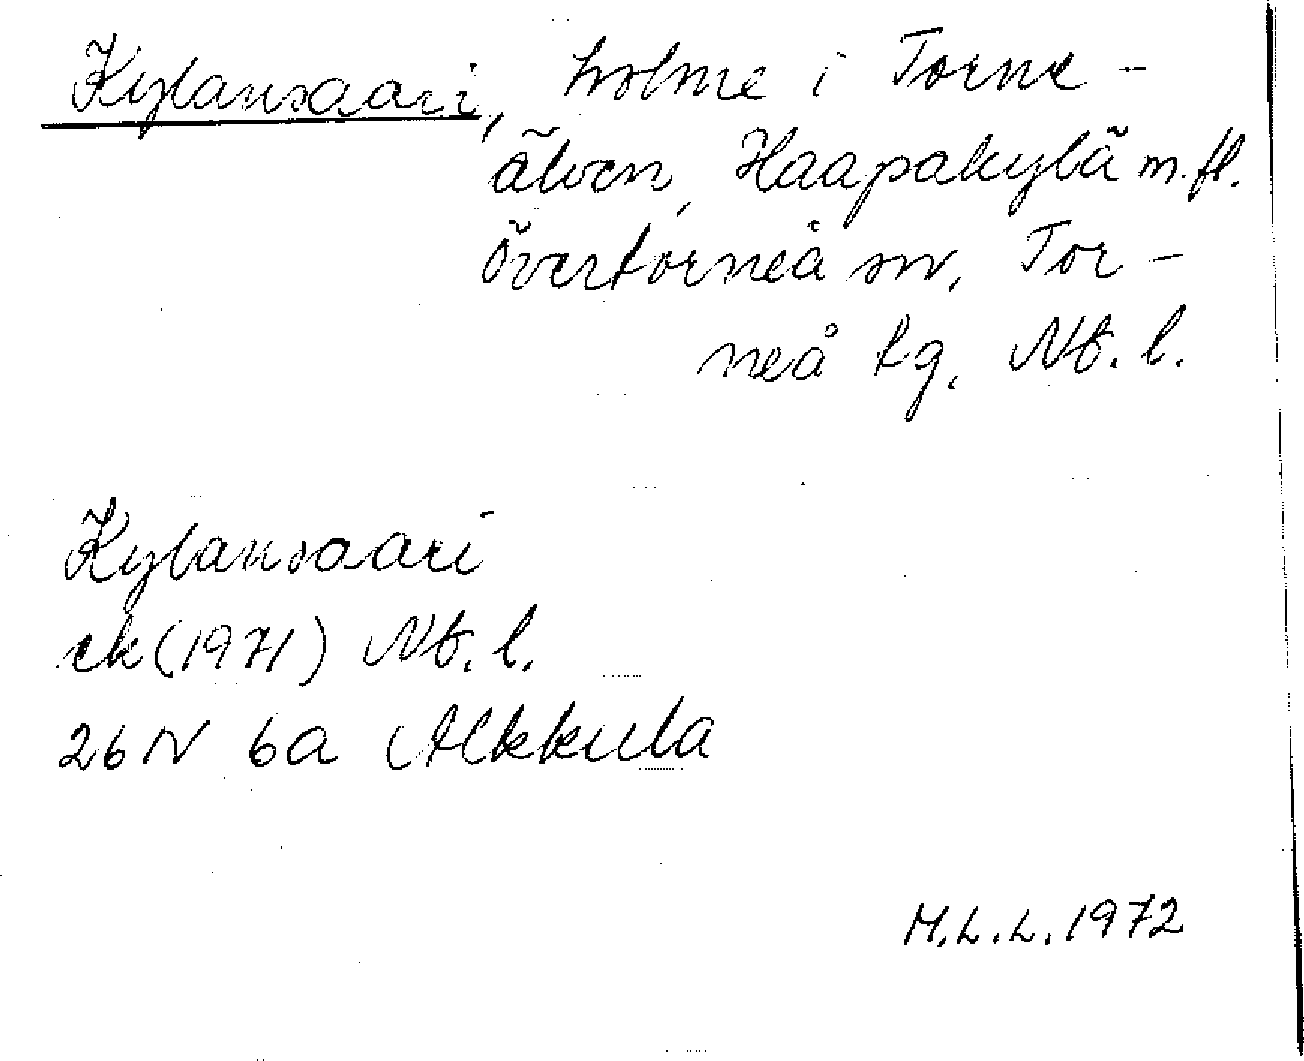 Kylansaari, holme i Torne-
älven, Haapakylä m.fl.
Övertorneå sn, Tor-
neå tg, Nb. l.
Kylansaari
ek (1971) Nb. l.
26 N 6a Alkkula
M.L.L. 1972